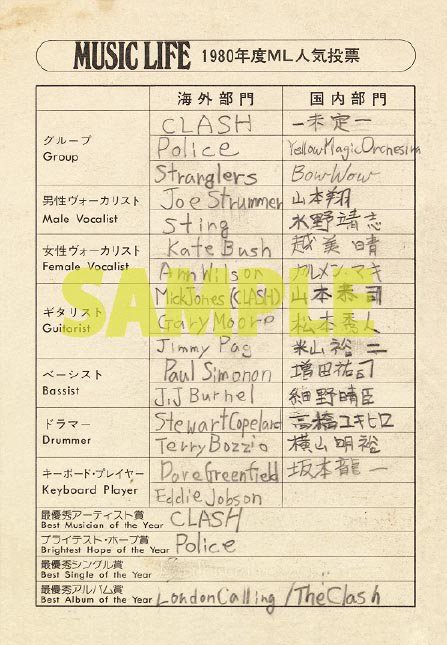 MUSIC LIFE 1980年度ML人気投票
海外部門 国内部門
グループ
Group
CLASH 一未定一
Police YellowMagicOrchestra
Stranglers BowWow
男性ヴォーカリスト
Male Vocalist
Joe Strummer 山本翔
Sting 水野靖志
女性ヴォーカリスト
Female Vocalist
Kate Bush 越美晴
Ann Wilson カルメン・マキ
SAMPLE
ギタリスト
Guitorist
MickJones (CLASH) 山本恭司
Gary Moore 松本秀人
Jimmy Pag 米山裕二
ベーシスト
Bassist
Paul Simonon 増田祐司
J.J Burnel 細野晴臣
ドラマー
Drummer
StewartCopeland 高橋ユキヒロ
Terry Bozzio 横山明裕
キーボード・プレイヤー
Keyboard Player
Dave Greenfield 坂本龍一
Eddie Jobson
最優秀アーティスト賞
Best Musician of the Year
CLASH
ブライテスト・ホープ賞
Brightest Hope of the Year
Police
最優秀シングル賞
Best Single of the Year
最優秀アルバム賞
Best Album of the Year
London Calling / The Clash